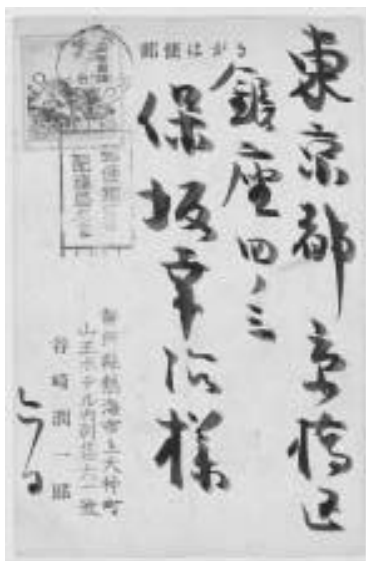 郵便はがき
東京都京橋区
銀座四ノ三
保坂幸治様
静岡縣熱海市上天神町
山王ホテル内別荘六一號
谷崎潤一郎